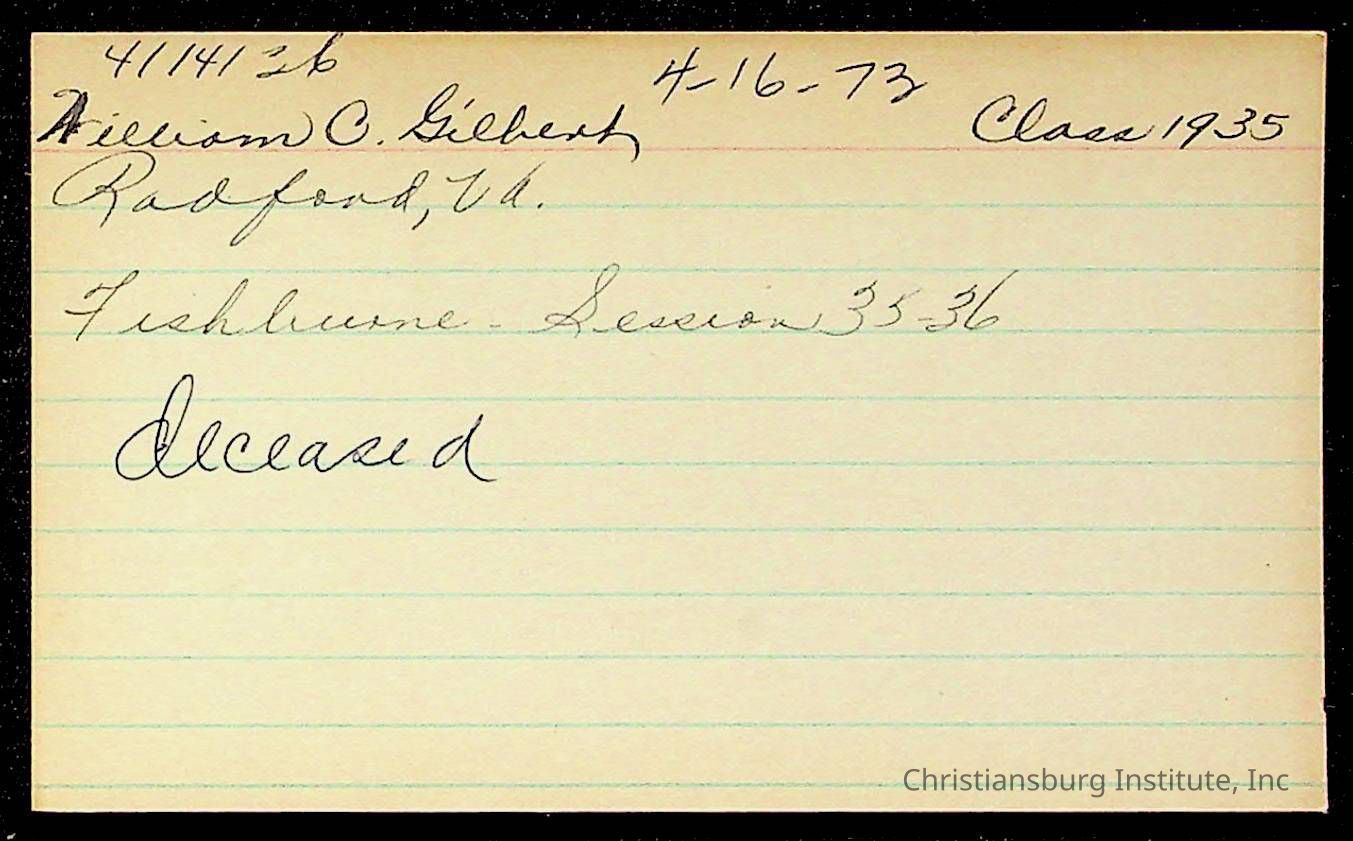 4114126 4-16-73
William C. Gilbert Class 1935
Radford, Va.
Fishburne - Session 35-36
deceased
Christiansburg Institute, Inc